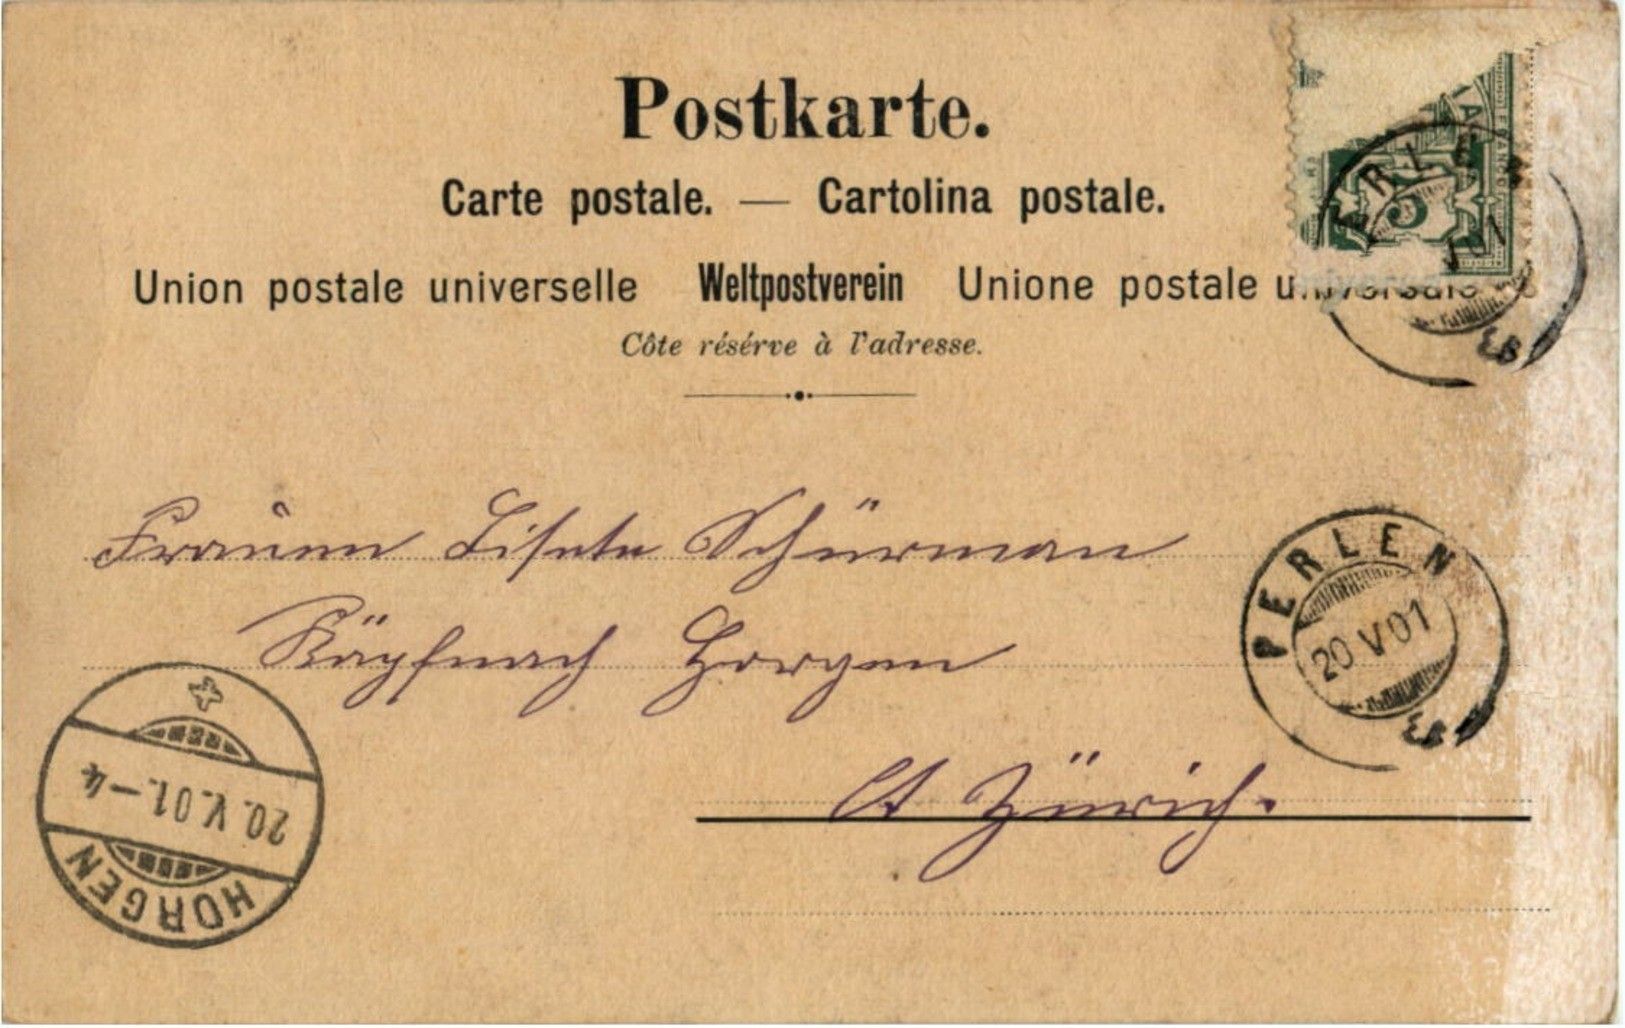 Postkarte.
Carte postale. — Cartolina postale.
Union postale universelle Weltpostverein Unione postale universale
Côte résérve à l'adresse.
5
PERLEN
Lisete Schürman
Käpfnach Horgen
Ct Zürich.
PERLEN
20 V 01
HORGEN
20. V. 01. – 4